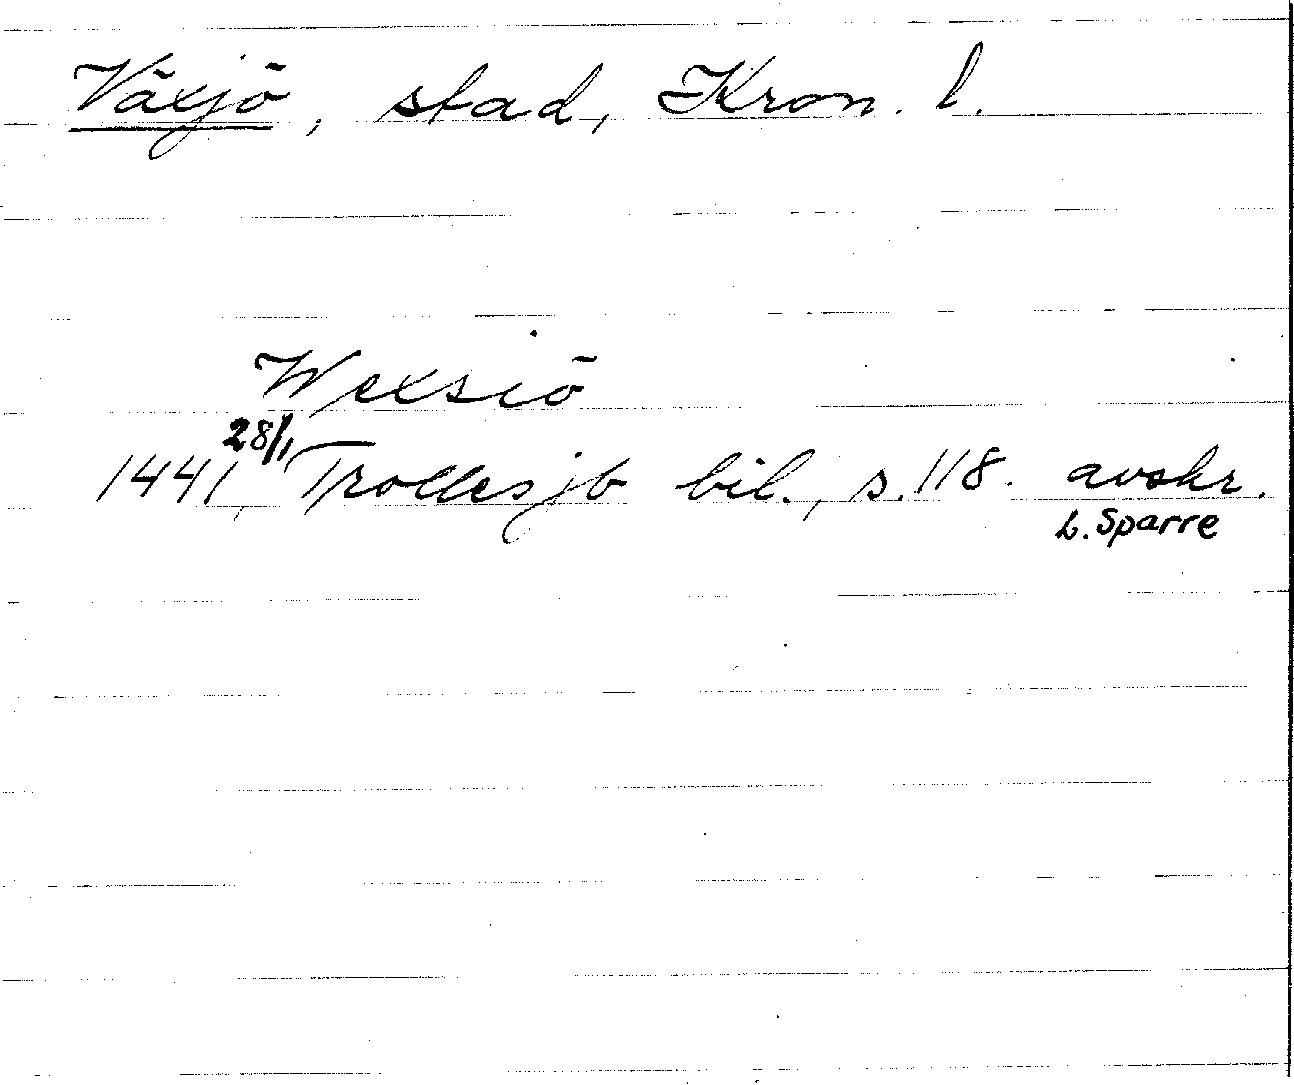 Växjö, stad, Kron. l.
Wexsiö
1441 28/1, Trollesjb bil., s. 118. avskr.
L. Sparre